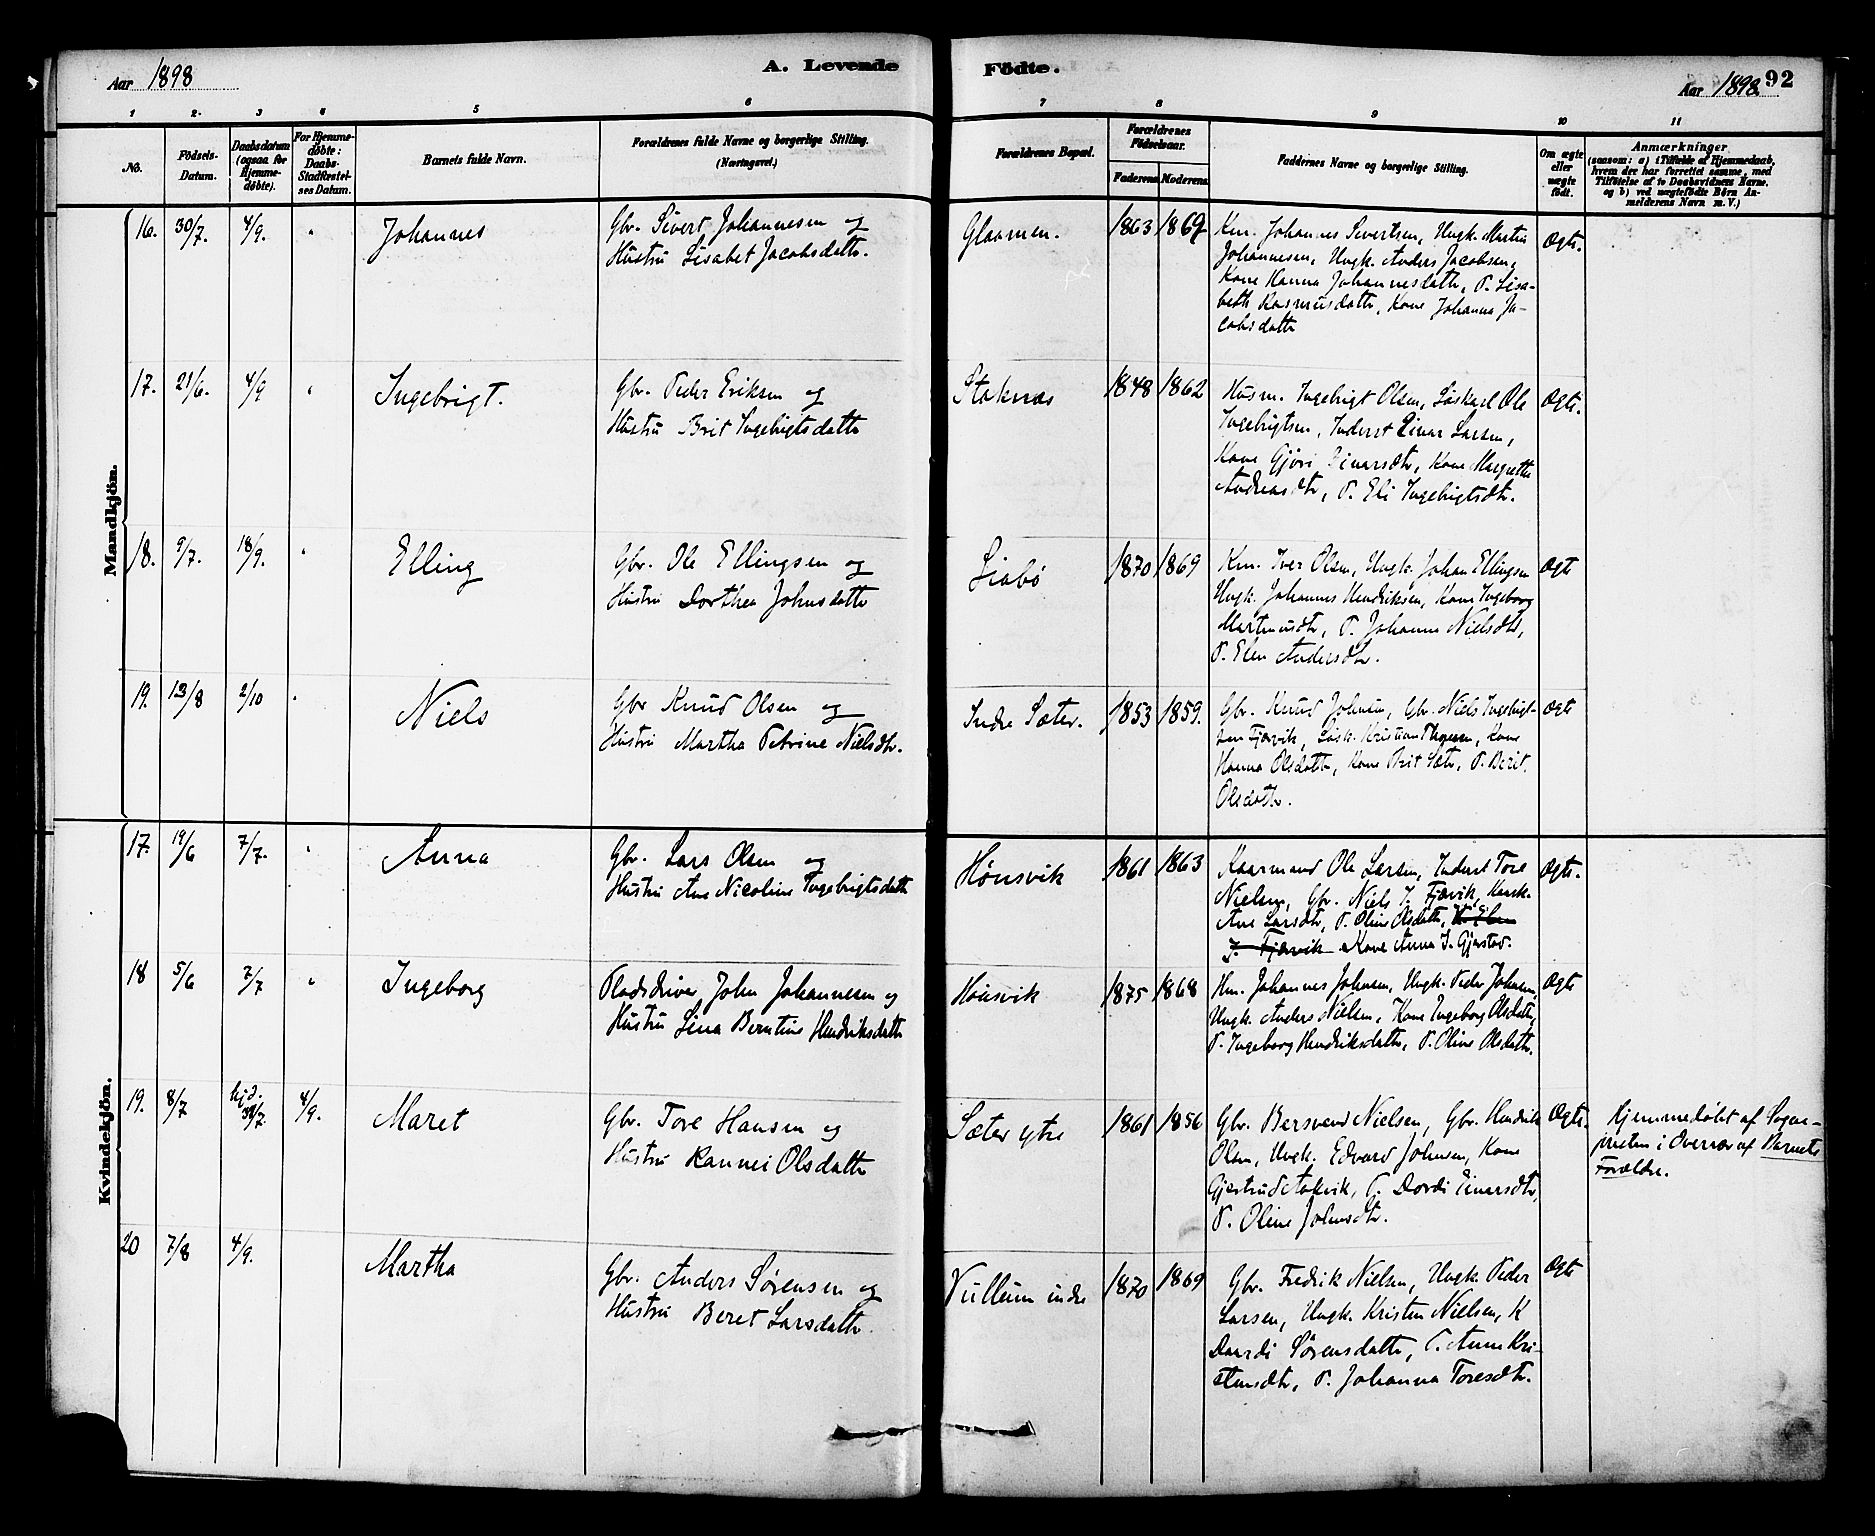 Aar 1898
A. Levende Födte.
Aar 1898.
92
1 2. 3 4 5 6 7 8 9 10 11
No.
Födsels-
Datum.
Daabsdatum
(ogsaa for
Hjemme-
døbte).
For Hjemme-
døbte:
Daabs-
Stadfæstel-
ses Datum.
Barnets fulde Navn.
Forældrenes fulde Navne og borgerlige Stilling.
(Næringsvei.)
Forældrenes Bopæl.
Forældrenes
Födselsaar.
Faderens Moderens
Faddernes Navne og borgerlige Stilling.
Om ægte
eller
uægte
født.
Anmærkninger
(saasom: a) i Tilfælde af Hjemmedaab,
hvem der har forrettet samme, med
Tilföielse af to Daabsvidners Navne,
og b) ved uægtefödte Börn An-
melderens Navn m. V.)
Mandkjön.
16. 30/7. 4/9. " Johannes
Gbr. Sivert Johannesen og
Hustru Lisabet Jacobsdattr.
Glaamen. 1863 1869
Km. Johannes Sivertsen, Ungk. Martin
Johannesen, Ungk. Anders Jacobsen,
Kone Hanna Johannesdattr, P. Lisa-
beth Rasmusdattr, Kone Johanna Ja-
cobsdattr
Ægte.
17. 21/6. 4/9 " Ingebrigt.
Gbr. Peder Eriksen og
Hustru Brit Ingebrigtsdattr
Staknes 1848 1862
Husm. Ingebrigt Olsen, Løskarl Ole
Ingebrigtsen, Inderst Einar Larsen,
Kone Gjøri Einarsdtr, Kone Margrethe
Andreasdtr, P. Eli Ingebrigtsdtr.
Ægte.
18. 9/7. 18/9. " Elling
Gbr. Ole Ellingsen og
Hustru Dorthea Johnsdattr
Liabø 1870 1869
Km. Iver Olsen, Ungk. Johan Ellingsen
Ungk. Johannes Hendriksen, Kone Ingeborg
Martinusdtr, P. Johanna Nielsdtr,
P. Elen Andersdtr.
Ægte
19. 13/8 2/10 " Niels
Gbr Knud Olsen og
Hustru Martha Petrine Nielsdtr.
Indre Sæter. 1853 1859.
Gbr. Knud Johnsen, Gbr. Niels Ingebrigt-
sen Fjærvik, Løsk. Kristian Thoresen, Kone
Hanna Olsdattr, Kone Brit Sæter, P. Berit
Olsdattr.
Ægte
Kvindekjön.
17. 19/6 7/7. " Anna
Gbr. Lars Olsen og
Hustru Ane Nicoline Ingebrigtsdattr
Hønsvik 1861 1863
Kaarmand Ole Larsen, Inderst Tore
Nielsen, Gbr. Niels I. Fjærvik, Kaark.
Ane Larsdtr, P. Oline Olsdattr, K. Elen
I. Fjærvik Kone Anna I. Gjerstad.
Ægte.
18 5/6 7/7 " Ingeborg
Pladsdriver John Johannesen og
Hustru Lina Berntine Hendriksdattr
Hønsvik 1875 1868
Hm. Johannes Johnsen, Ungk. Peder Johnsen,
Ungk. Anders Nielsen, Kone Ingeborg Olsdattr,
P. Ingeborg Hendriksdattr, P. Oline Olsdattr.
Ægte
19. 8/7 hjd. 31/7. 4/9. Maret
Gbr. Tore Hansen og
Hustru Rannei Olsdattr
Sæter ytre 1861 1856
Gbr. Bersvend Nielsen, Gbr. Hendrik
Olsen, Ungk. Edvard Johnsen, Kone
Gjertrud Aakvik, P. Dordi Einarsdtr,
P. Oline Johnsdtr.
Ægte.
Hjemmedøbt af Sogne-
præsten i Overvær af Barnets
Forældre.
20 7/8 4/9. Martha
Gbr. Anders Sørensen og
Hustru Beret Larsdattr.
Vullum indre 1870 1869
Gbr. Fredrik Nielsen, Ungk. Peder
Larsen, Ungk. Kristen Nielsen, K
Daardi Sørensdattr, P. Anne Kri-
stensdtr, P. Johanna Toresdtr.
Ægte